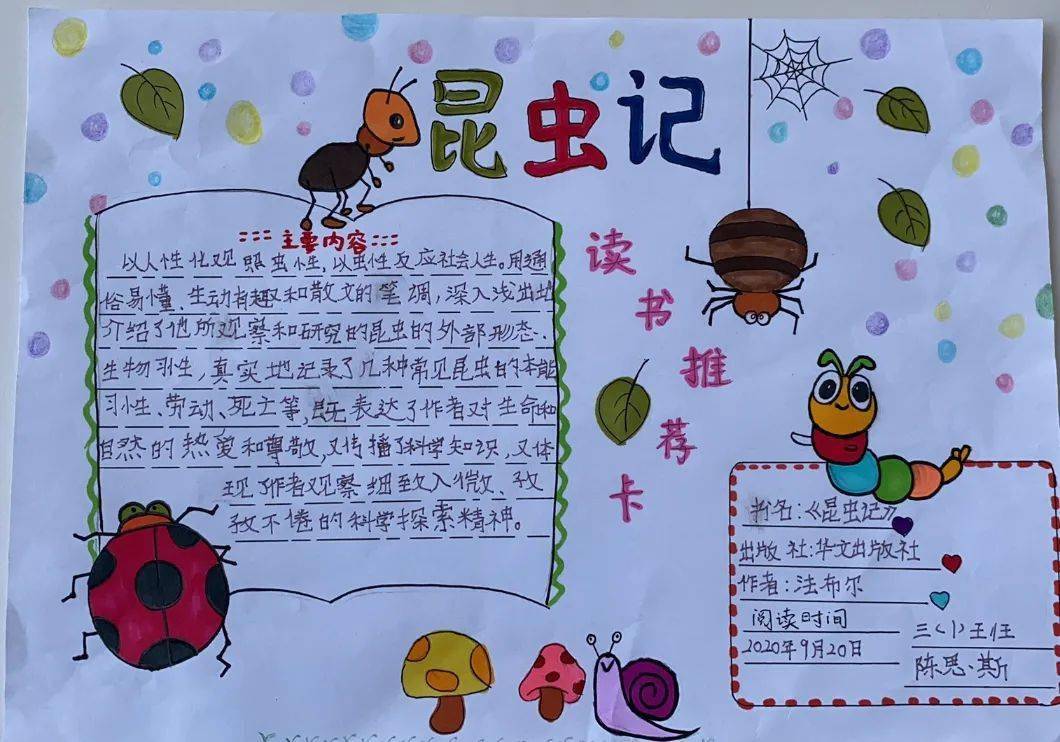 昆虫记
主要内容
以人性化观照虫性，以虫性反应社会人生。用通
俗易懂、生动有趣和散文的笔调，深入浅出地
介绍了他所观察和研究的昆虫的外部形态、
生物习性，真实地记录了几种常见昆虫的本能
习性、劳动、死亡等，既表达了作者对生命和
自然的热爱和尊敬，又传播了科学知识，又体
现了作者观察细致入微、孜
孜不倦的科学探索精神。
读书推荐卡
书名：《昆虫记》
出版社：华文出版社
作者：法布尔
阅读时间
2020年9月20日
三（1）王
陈思·斯